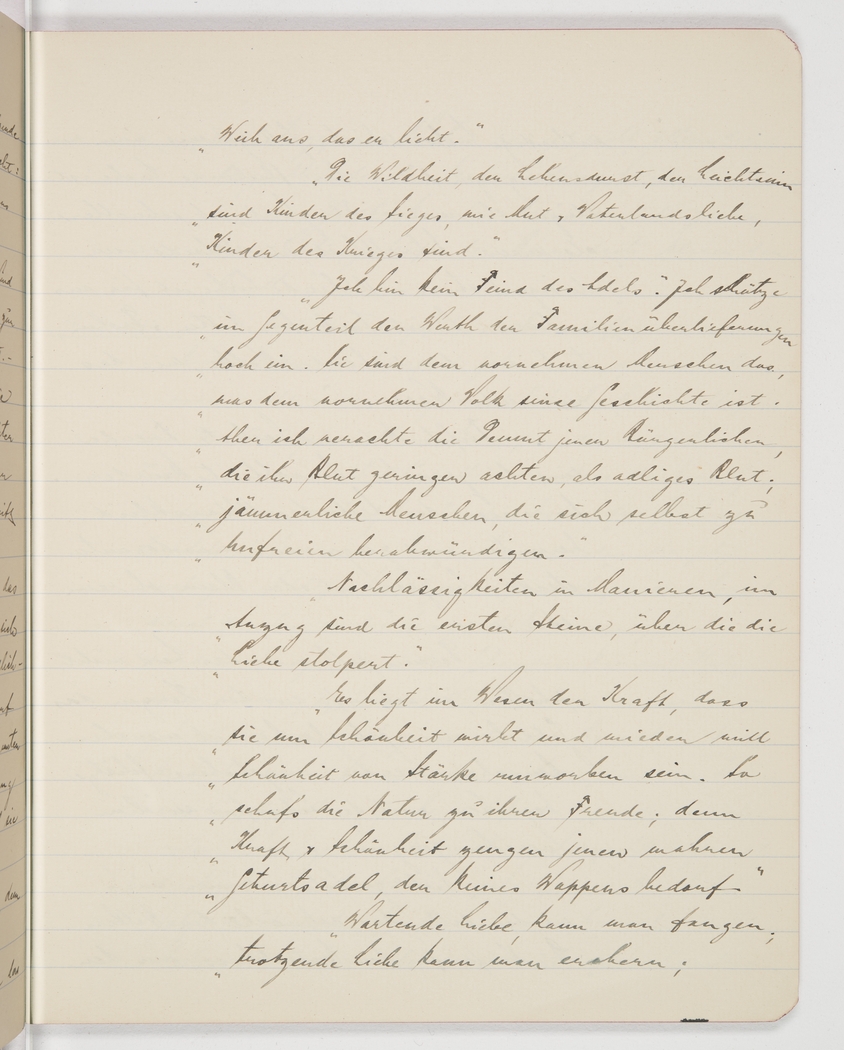 „Weib aus, das er liebt."
„Die Wildheit, der Lebensdurst, der Leichtsinn
„sind Kinder des Sieges, wie Mut & Vaterlandsliebe,
„Kinder des Krieges sind."
„Ich bin kein Feind des Adels". Ich schätze
„im Gegenteil den Werth der Familienüberlieferungen
„hoch ein. Sie sind dem vornehmen Menschen das,
„was dem vornehmen Volk seine Geschichte ist.
„Aber ich verachte die Demut jener Bürgerlichen,
„die ihr Blut geringer achten, als adliges Blut;
„jämmerliche Menschen, die sich selbst zu
„Unfreien herabwürdigen."
„Nachlässigkeiten in Manieren, im
„Anzug sind die ersten Steine, über die die
„Liebe stolpert."
„Es liegt im Wesen der Kraft, dass
„sie um Schönheit wirbt und wieder will
„Schönheit von Stärke umworben sein. So
„schufs die Natur zu ihrer Freude; denn
„Kraft & Schönheit zeugen jenen wahren
„Geburtsadel, der keines Wappens bedarf"
„Wartende Liebe, kann man fangen;
„trotzende Liebe kann man erobern;